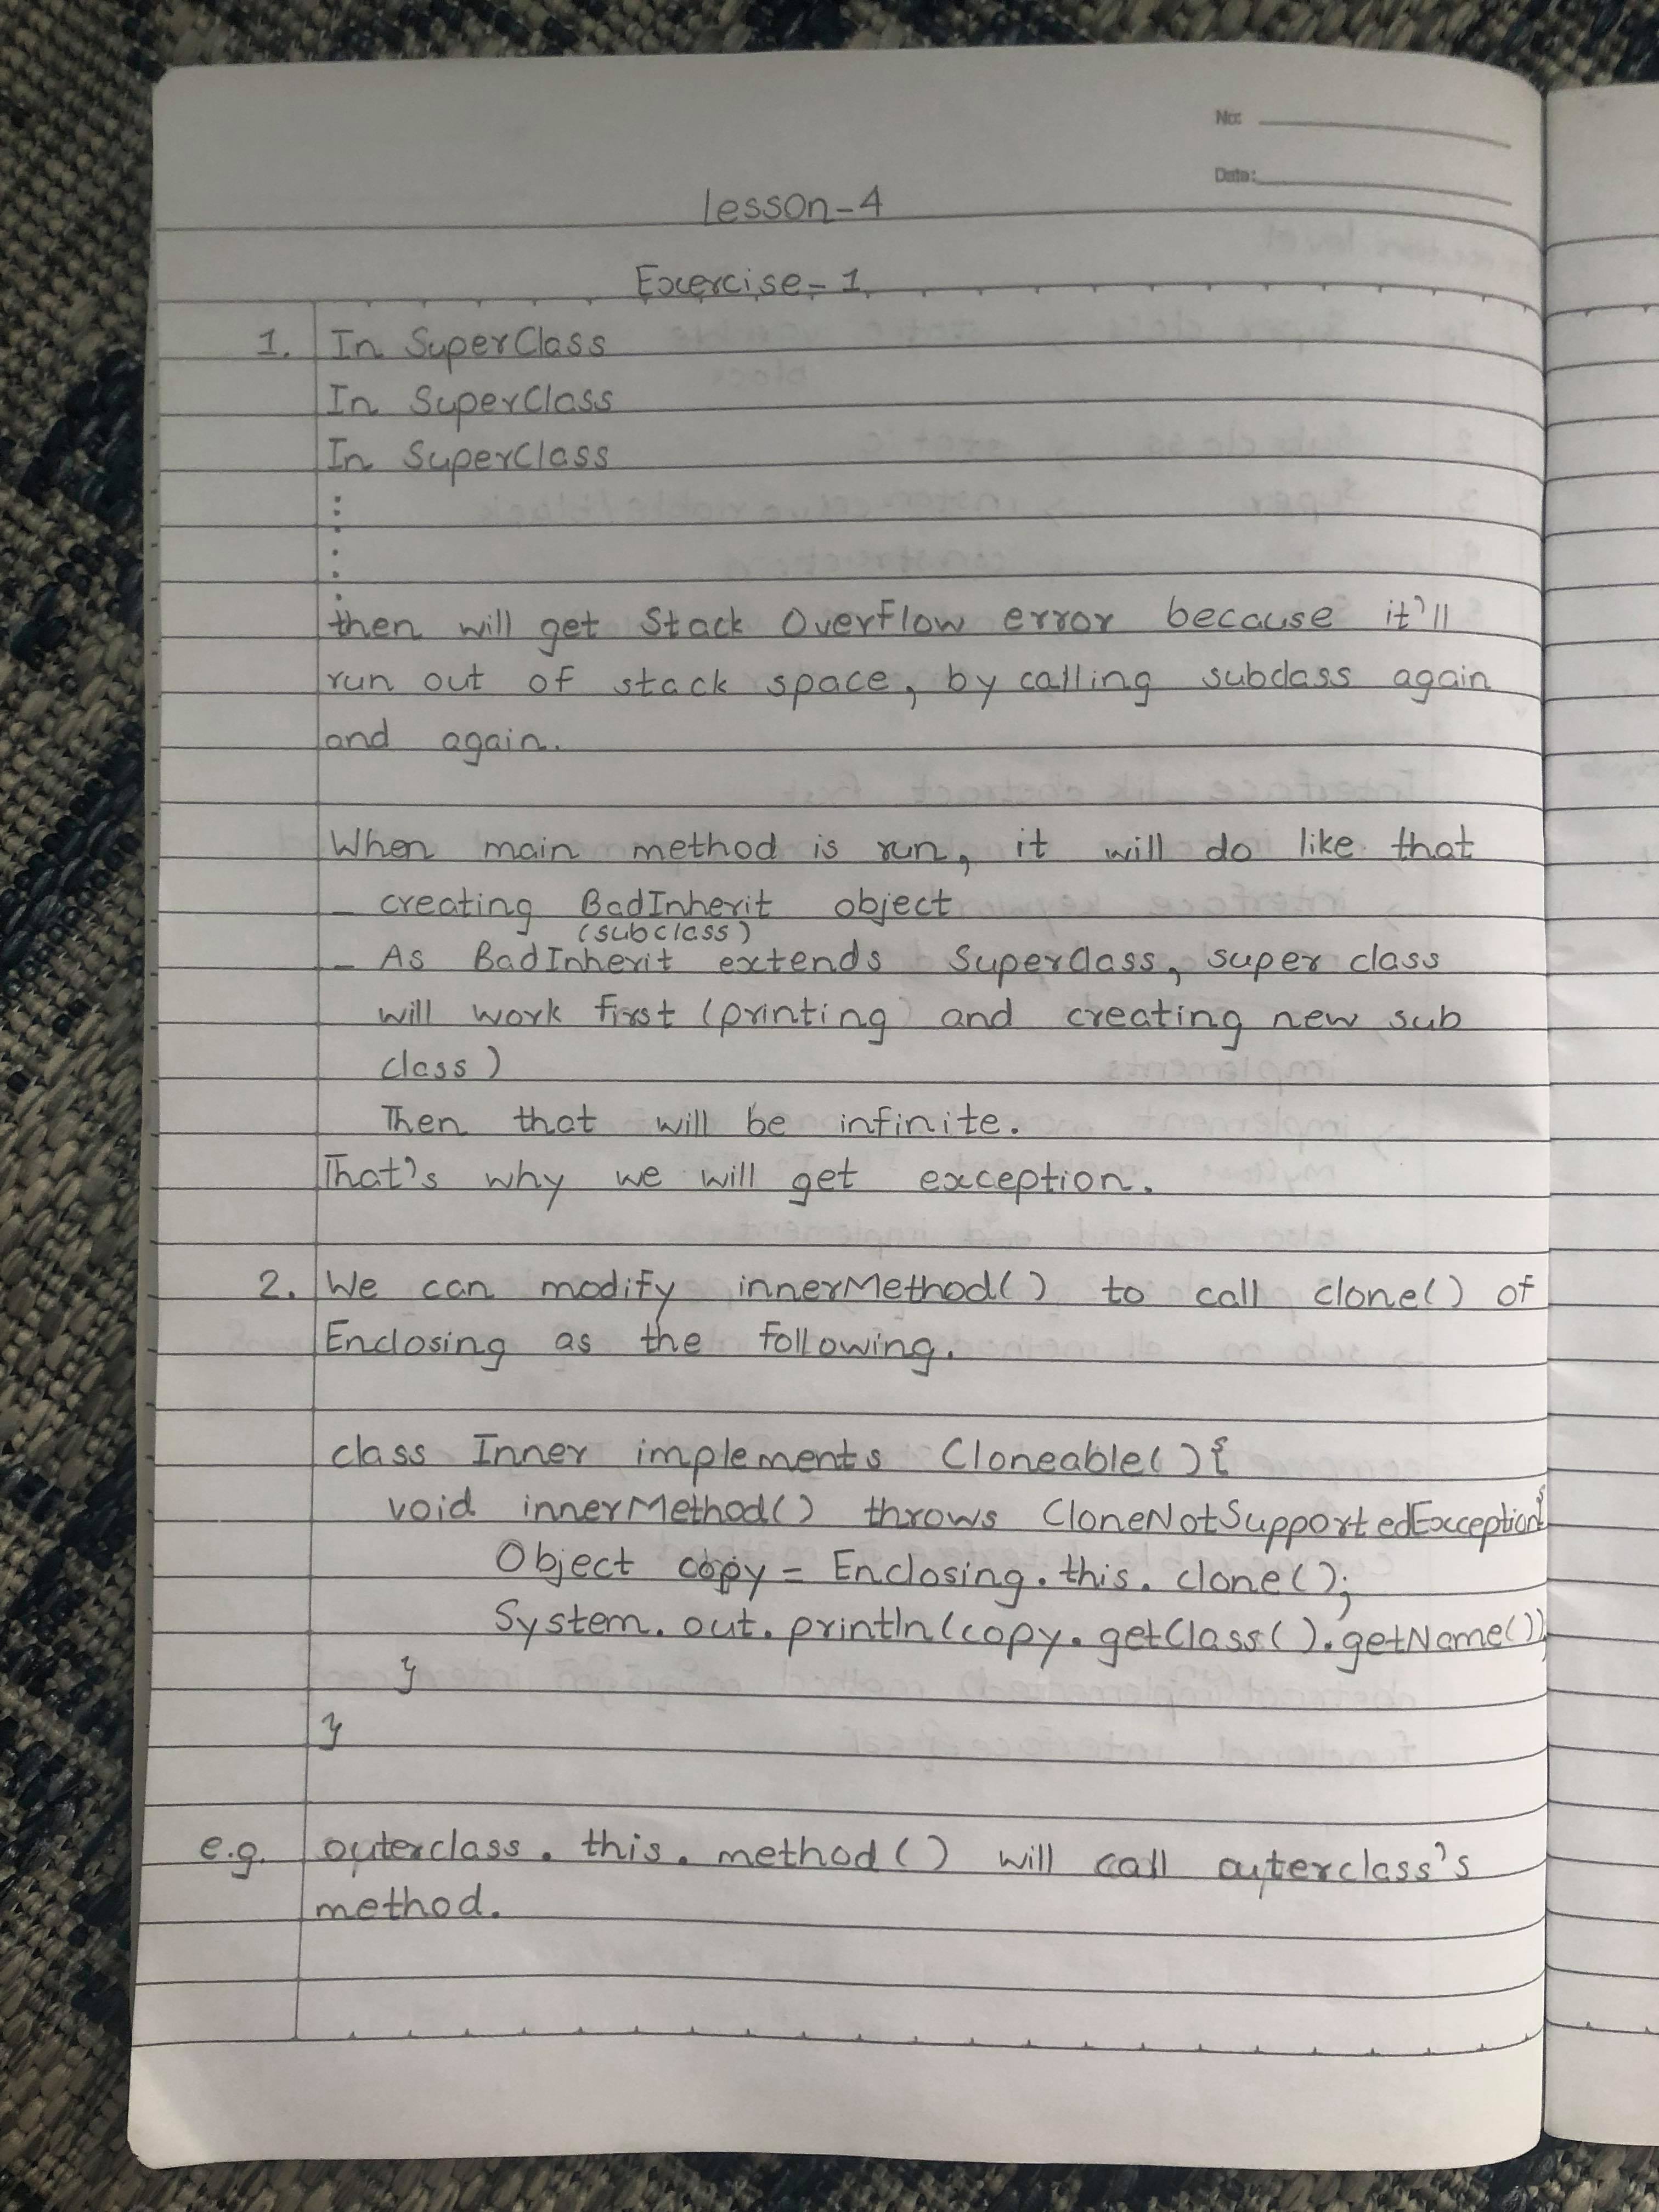 No:
Date:
lesson-4
Exercise-1
1. In SuperClass
In SuperClass
In SuperClass
then will get Stack Overflow error because it'll
run out of stack space, by calling subclass again
and again.
When main method is run, it will do like that
- creating BadInherit object
(subclass)
- As BadInherit extends SuperClass, super class
will work first (printing and creating new sub
class)
Then that will be infinite.
That's why we will get exception.
2. We can modify innerMethod() to call clone() of
Enclosing as the following.
class Inner implements Cloneable(){
void innerMethod() throws CloneNotSupportedException{
Object copy = Enclosing.this.clone();
System.out.println(copy.getClass().getName());
}
}
e.g. outerclass.this.method() will call outerclass's
method.